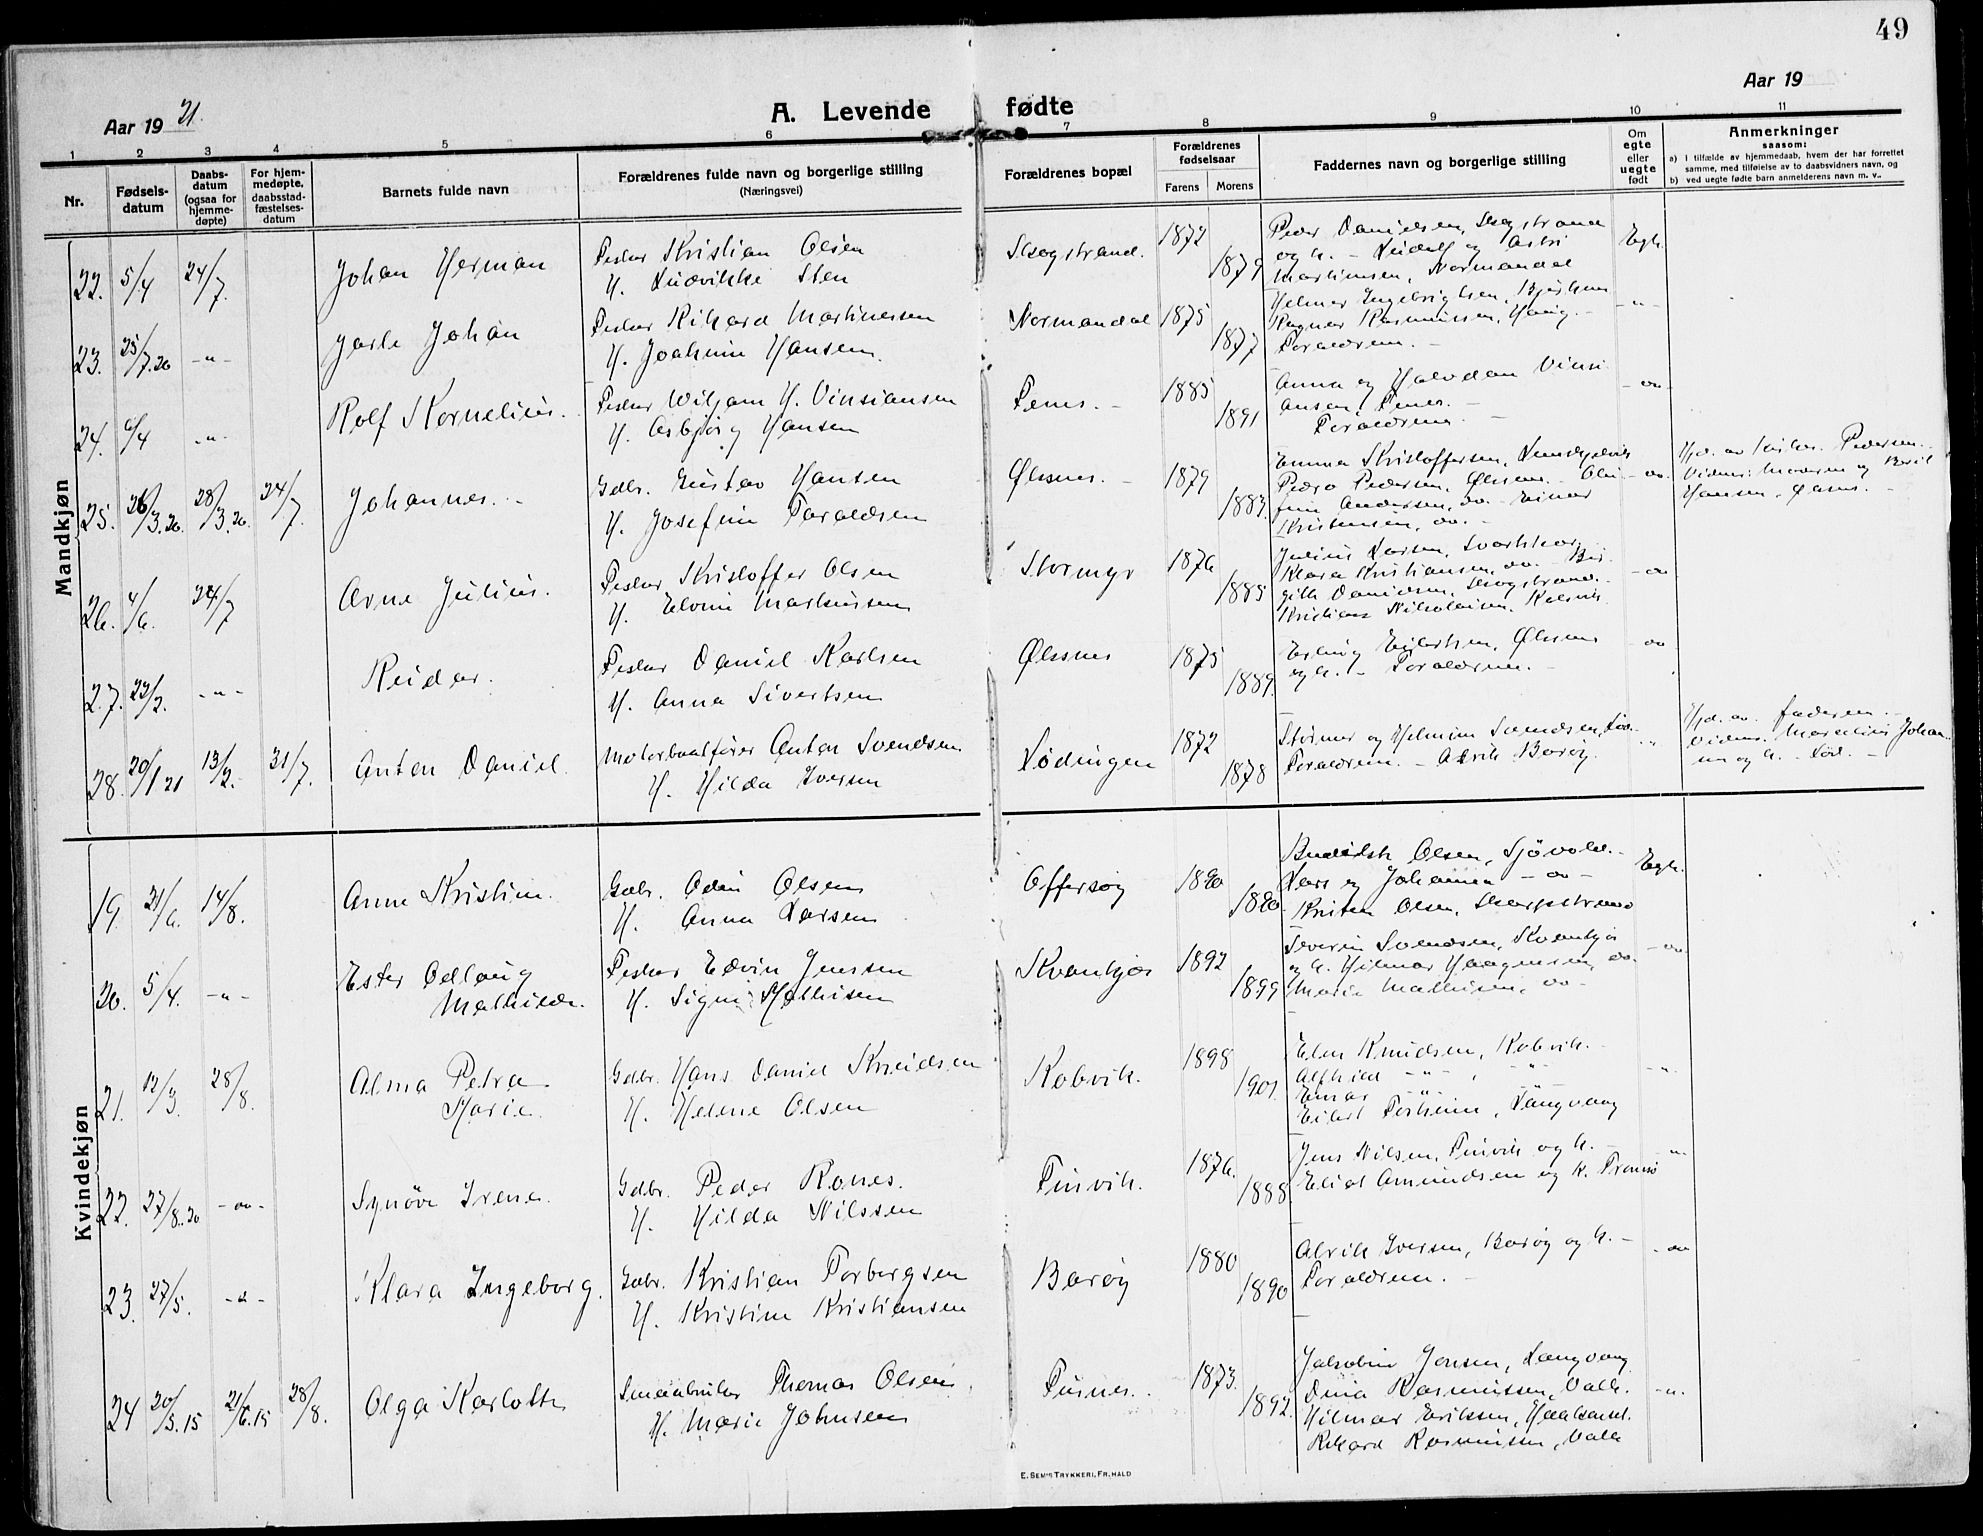 49
Aar 19 21.
A. Levende fødte
Aar 19
1 2 3 4 5 6 7 8 9 10 11
Nr.
Fødsels-
datum
Daabs-
datum
(ogsaa for
hjemme-
døpte)
For hjem-
medøpte,
daabsstad-
fæstelses-
datum
Barnets fulde navn
Forældrenes fulde navn og borgerlige stilling
(Næringsvei)
Forældrenes bopæl
Forældrenes
fødselsaar
Farens Morens
Faddernes navn og borgerlige stilling
Om
egte
eller
uegte
født
Anmerkninger
saasom:
a) I tilfælde av hjemmedaab, hvem der har forrettet
samme, med tilføielse av to daabsvidners navn, og
b) ved uegte fødte barn anmelderens navn m. v..
Mandkjøn
22. 5/4 24/7. Johan Herman
Fisker Kristian Olsen
H. Ludvikke Sten
Skogstrand. 1872 1879
Peder Danielsen, Skogstrand
og h. - Ludolf og
Martinsen, Normandal
Egt.
23. 25/7.20 -"- Jarle Johan
Fisker Rikard Martinussen
H. Joakime Hansen.
Normandal 1875 1877
Helmer Engebrigtsen,
Ragnar Rasmussen, Haug. -
Foraldrene. -
-"-
24. 6/4 -"- Rolf Kornelius.
Fisker Wiljam H. Vinsiansen
H. Asbjørg Hansen
Fenes. - 1885 1891
Anna og Halvdan Vinsi
ansen, Fenes. -
Foraldrene -
- do -
25. 26/3.20 28/3.20. 24/7. Johannes. -
Gdbr. Gustav Hansen
H. Josefine Taraldsen
Øksnes. - 1879 1883.
Emma Kristoffersen,
Pedro Pedersen, Øksnes. - Oli-
fine Andersen, do. - Einar
Kristensen, do. -
- do.
Hjd. av Pedersen. -
Vidner: Moderen og
Hansen, Øksnes. -
26. 4/6. 24/7 Arne Julius.
Fisker Kristoffer Olsen
H. Elvine Markussen
Stormyr 1876 1885
Julius Larsen, Svartskar,
Klara Kristiansen, do. - Bir
gith Danielsen, Skogstrand. -
Kristians Nikolaisen,
- do
27. 22/2. -"- Reidar.
Fisker Daniel Karlsen
H. Anna Sivertsen
Øksnes 1875 1889.
Erling Eilertsen, Øksnes
og h. - Foraldrene. -
- do
28. 20/1 21 13/2. 31/7. Anton Daniel.
Motorbaatfører Anton Svendsen
H. Hilda Iversen
Lødingen 1872 1878
Stormer og Helmine Svendsen, Lød.
Foraldrene. - Alrik Barøy.
"
Hjd. av faderen. -
Vidner. Marselius Johan-
nes og h. - Lød. -
Kvindekjøn
19. 21/6. 14/8. Anne Kristine.
Gdbr. Odin Olsen
H. Anna Larsen
Offersøy 1890 1890.
Olsen, Sjøvold. -
Lars og Johanna - do -
Kristen Olsen, Skarpstrand
Egt.
20. 5/4. -"- Ester Odlaug
Mathilde.
Fisker Edvin Jenssen
H. Signe Mathisen
Kvankjos 1892 1899
Severin Svendsen, Kvankjos
og h. Hilmar Haagensen, do.
Marie Mathisen, do -
- do
21. 12/3. 28/8. Alma Petra
Marie.
Gdbr. Hans Daniel Knudsen
H. Helene Olsen
Kobvik. 1898 1901.
Elen Knudsen, Kobvik. -
Alfhild -"- , -"-
Einar -"-
Eilert Forheim, Langvaag
-"-
22. 27/8.20 - do - Synøve Irene.
Gdbr. Peder Rones.
H. Hilda Nilssen
Finvik. 1876. 1888
Jens Nilsen, Finvik og h. -
Elias Amundsen og h. Tromsø
-"-
23. 27/5. -"- Klara Ingeborg.
Gdbr. Kristian Torbergsen
H. Kristine Kristiansen
Barøy 1880 1890
Alrik Iversen, Barøy og h. -
Foraldrene. -
- do
24 20/5.15 21/6.15 28/8. Olga Karlotte
Smaabruker Thomas Olsen,
H. Marie Johnsen
Fusnes. 1873. 1892.
Jakobine Jensen, Langvaag
Dina Rasmussen, Valle.
Hilmar Eriksen,
Rikard Rasmussen, Valle
-"-
E. SEM'S TRYKKERI, FR. HALD